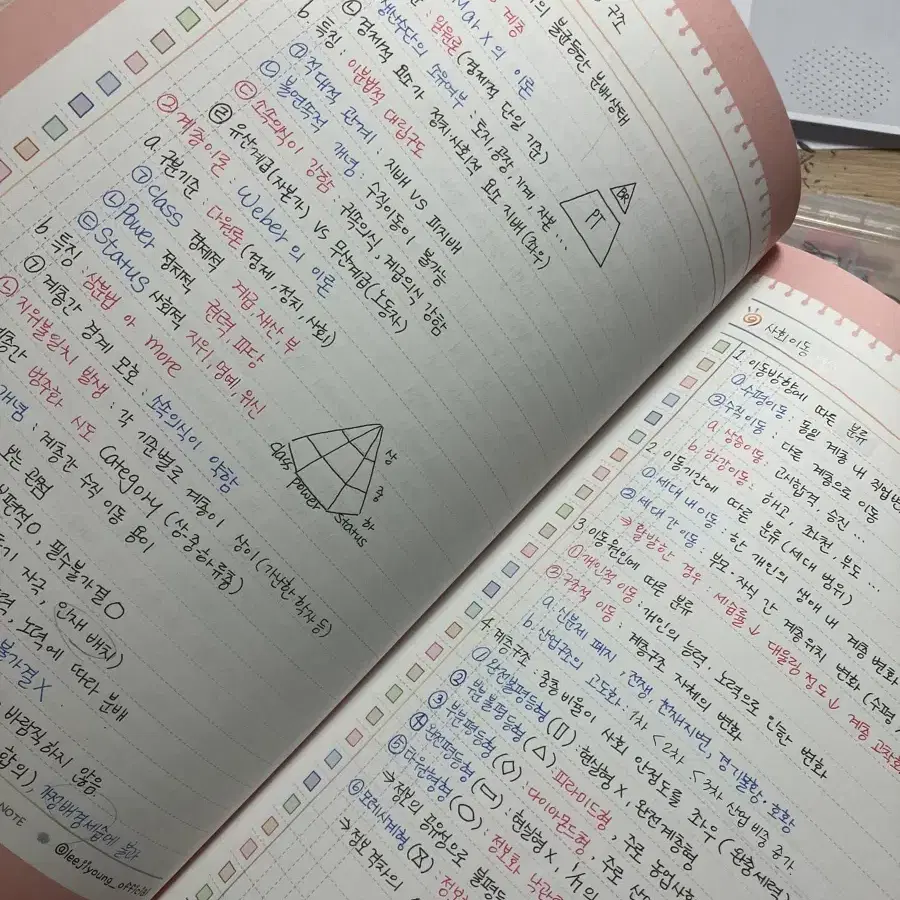 구조
의 불균등한 분배상태
계층
Marx의 이론
: 일원론 (경제적 단일 기준)
생산수단의 소유여부 : 토지, 공장, 기계, 자본...
ⓛ 경제적 요소가 정치·사회적 요소 지배 (좌우)
b 특징 : 이분법적 대립구도
㉠ 적대적 관계 : 지배 VS 피지배
㉡ 불연속적 개념 : 수직이동이 불가능
㉢ 소속의식이 강함 : 귀속의식, 계급의식 강함
㉣ 유산계급(자본가) VS 무산계급(노동자)
BR
PT
② 계층이론 : Weber의 이론
a 구분기준 : 다원론 (경제, 정치, 사회)
㉠ Class 경제적 계급, 재산, 부
㉡ Power 정치적 권력, 파당
㉢ Status 사회적 지위, 명예, 위신
b 특징 : 삼분법 or more
㉠ 계층간 경계 모호 : 소속의식이 약함
㉡ 지위불일치 발생 : 각 기준별로 계층이 상이 (가난한 학자 등)
범주화 시도 Category (상중하류층)
개념 : 계층간 수직 이동 용이
class
power
status
상
중
하
보는 관점
보편적 O, 필수불가결 O
자극, 인재 배치)
노력에 따라 분배
불가결 X
바람직하지 않음
가정배경
NOTE
@leejiyoung_official
사회이동
1. 이동방향에 따른 분류
① 수평이동 : 동일 계층 내 직업변
② 수직이동 : 다른 계층으로 이동
a. 상승이동 : 고시합격, 승진...
b. 하강이동 : 해고, 좌천, 부도...
2. 이동기간에 따른 분류 (세대 범위)
① 세대 내 이동 : 한 개인의 생애 내 계층 변화
② 세대 간 이동 : 부모·자식 간 계층위치 변화 (수평
⇒ 활발한 경우 세습률↓ 대물림 정도↓ 계층 고착화
3. 이동원인에 따른 분류
① 개인적 이동 : 개인의 능력·노력으로 인한 변화
② 구조적 이동 : 계층구조 자체의 변화
a. 신분제 폐지, 전쟁, 천재지변, 경기불황·호황
b. 산업구조의 고도화 : 1차 < 2차 < 3차 산업 비중 증가
4. 계층구조 : 중층 비율이 사회 안정도를 좌우 (완충세력)
① 완전불평등형 (||) : 현상형 X, 완전계층형
② 부분불평등형 (△) : 피라미드형, 주로 농업사회
③ 부분평등형 (◇) : 다이아몬드형, 주로 산
④ 완전평등형 (▭) : 현상형 X,
⑤ 타원형형 (○) : 정보화 낙관론
⇒ 정보의 공유성으로 불평등
⑥ 모래시계형 (⧖) : 정보
⇒ 정보 격차의